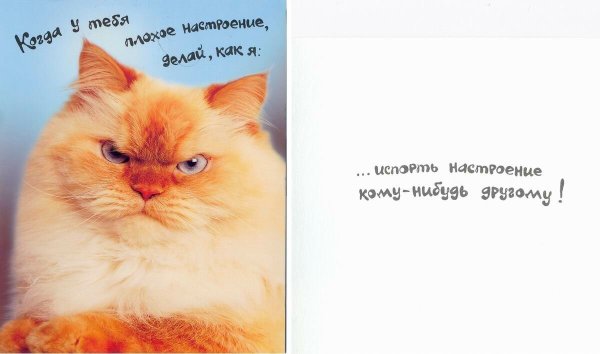 Когда у тебя
плохое настроение,
делай, как я:
...испорть настроение
кому-нибудь другому!